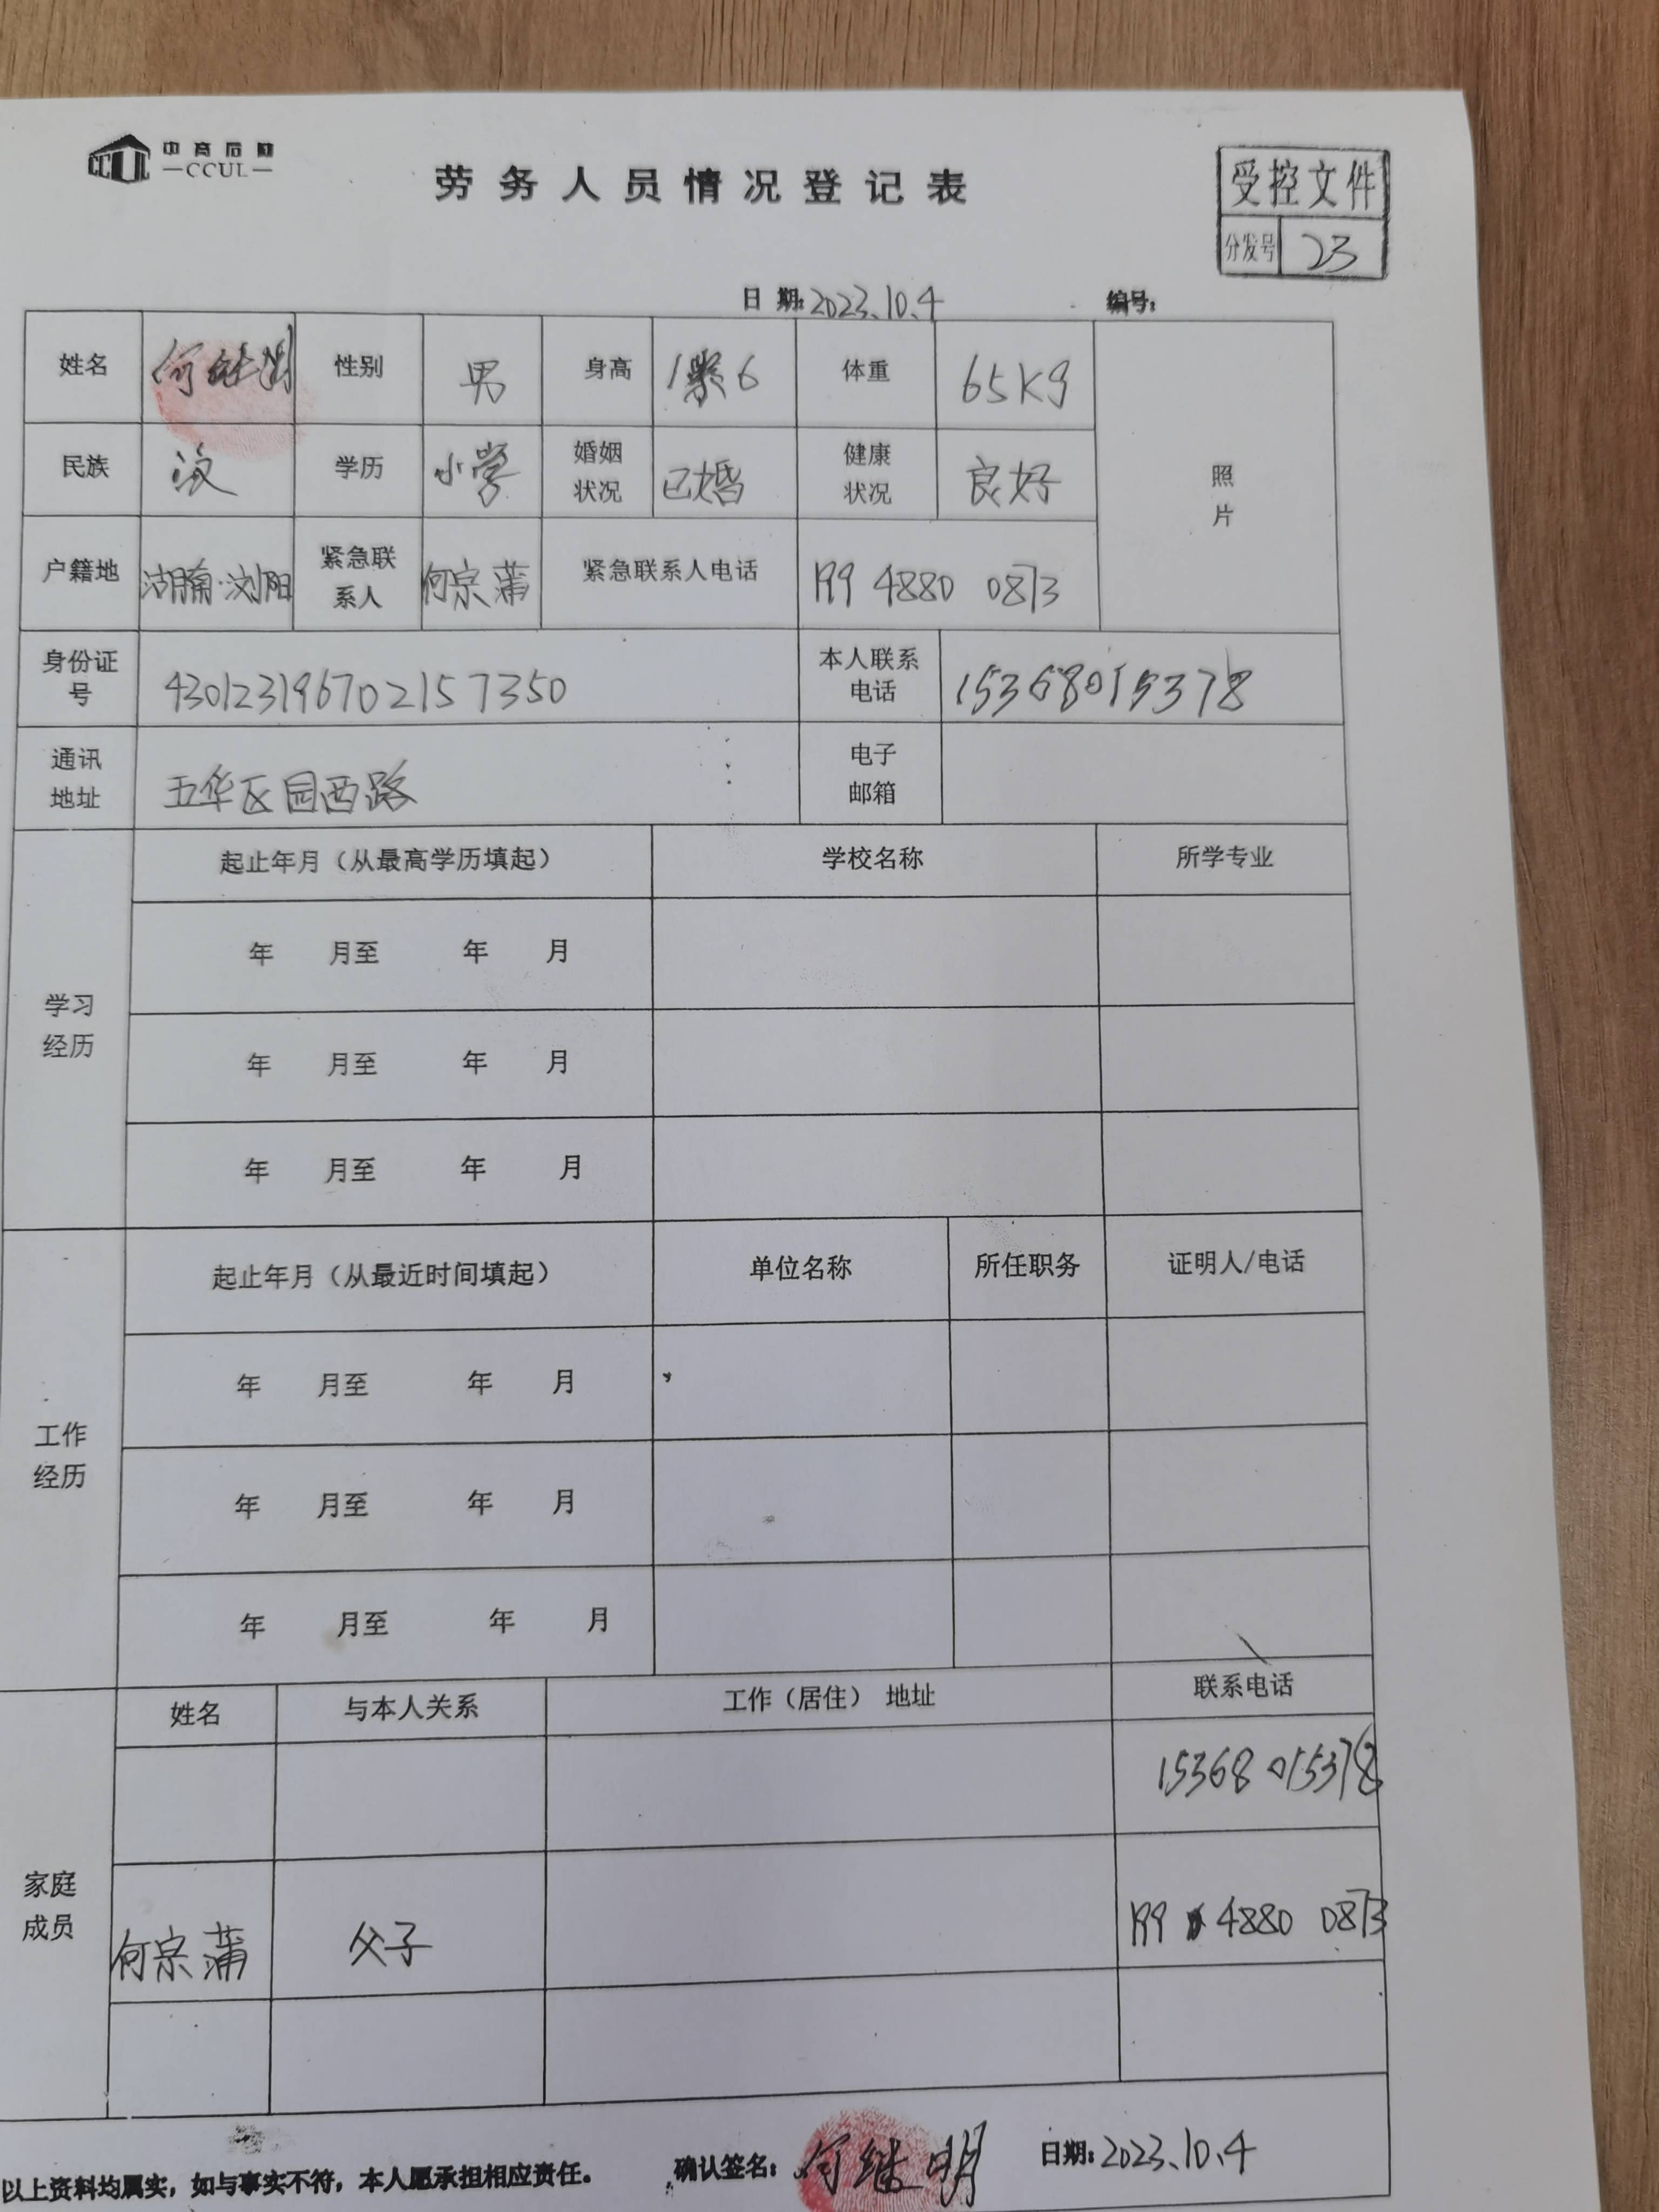 中商后勤
—CCUL—
劳务人员情况登记表
受控文件
分发号 23
日期:2023.10.4 编号:
姓名 何继明 性别 男 身高 1米6 体重 65Kg 照片
民族 汉 学历 小学 婚姻状况 已婚 健康状况 良好
户籍地 湖南·浏阳 紧急联系人 何宗蒲 紧急联系人电话 199 4880 0873
身份证号 430123196702157350 本人联系电话 15368015378
通讯地址 五华区园西路 电子邮箱
学习经历 起止年月(从最高学历填起) 学校名称 所学专业
年 月至 年 月
年 月至 年 月
年 月至 年 月
工作经历 起止年月(从最近时间填起) 单位名称 所任职务 证明人/电话
年 月至 年 月
年 月至 年 月
年 月至 年 月
家庭成员 姓名 与本人关系 工作(居住) 地址 联系电话
15368015378
何宗蒲 父子 199 4880 0873
以上资料均属实,如与事实不符,本人愿承担相应责任。 确认签名: 何继明 日期:2023.10.4